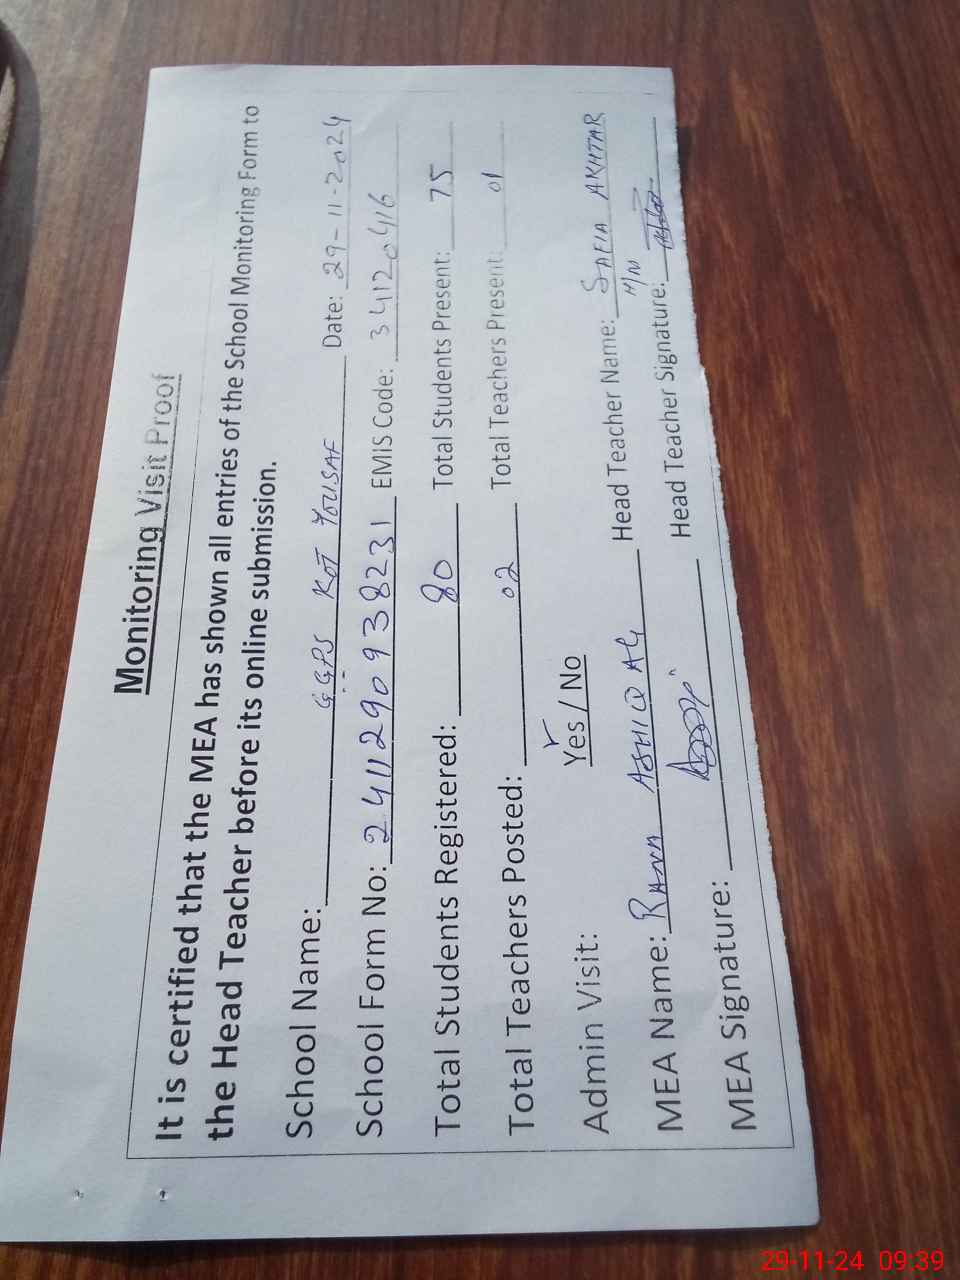 Monitoring Visit Proof
It is certified that the MEA has shown all entries of the School Monitoring Form to
the Head Teacher before its online submission.
School Name: GGPS KOT YOUSAF Date: 29-11-2024
School Form No: 2411290938231 EMIS Code: 34120416
Total Students Registered: 80 Total Students Present: 75
Total Teachers Posted: 02 Total Teachers Present: 01
Admin Visit: Yes / No
MEA Name: RANA ASHIQ ALI Head Teacher Name: SAFIA AKHTAR
MEA Signature: Head Teacher Signature:
29-11-24 09:39